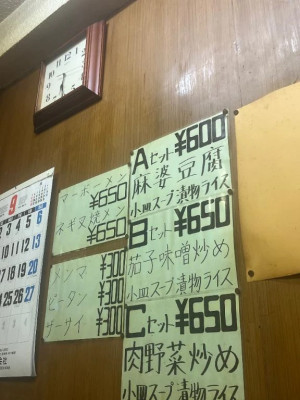 マーボーメン
¥650
ネギ叉焼メン
¥650
メンマ ¥300
ピータン ¥300
ザーサイ ¥300
Aセット ¥600
麻婆豆腐
小皿スープ漬物ライス
Bセット ¥650
茄子味噌炒め
小皿スープ漬物ライス
Cセット ¥650
肉野菜炒め
小皿スープ漬物ライス
9
6
13
20
27